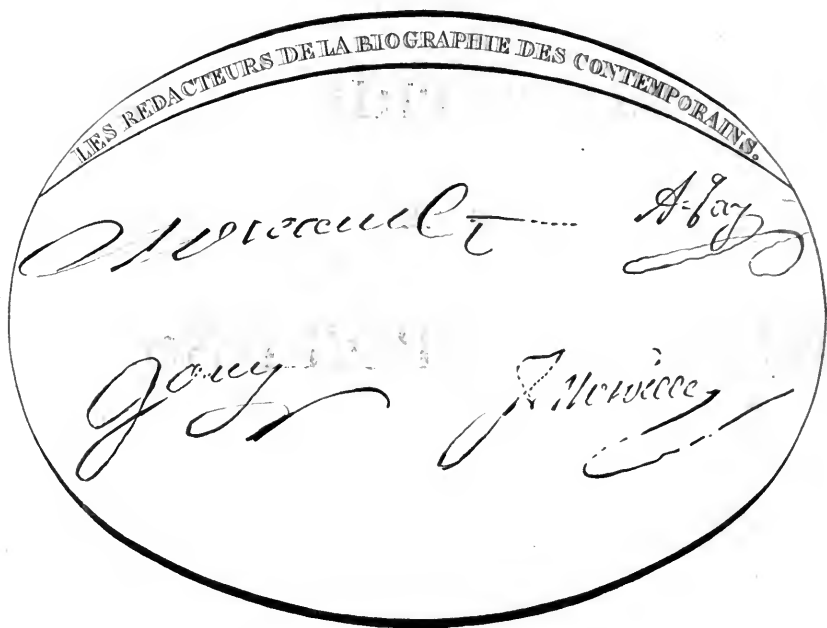 LES REDACTEURS DE LA BIOGRAPHIE DES CONTEMPORAINS.
A. Jay
Jouy J. Norvins